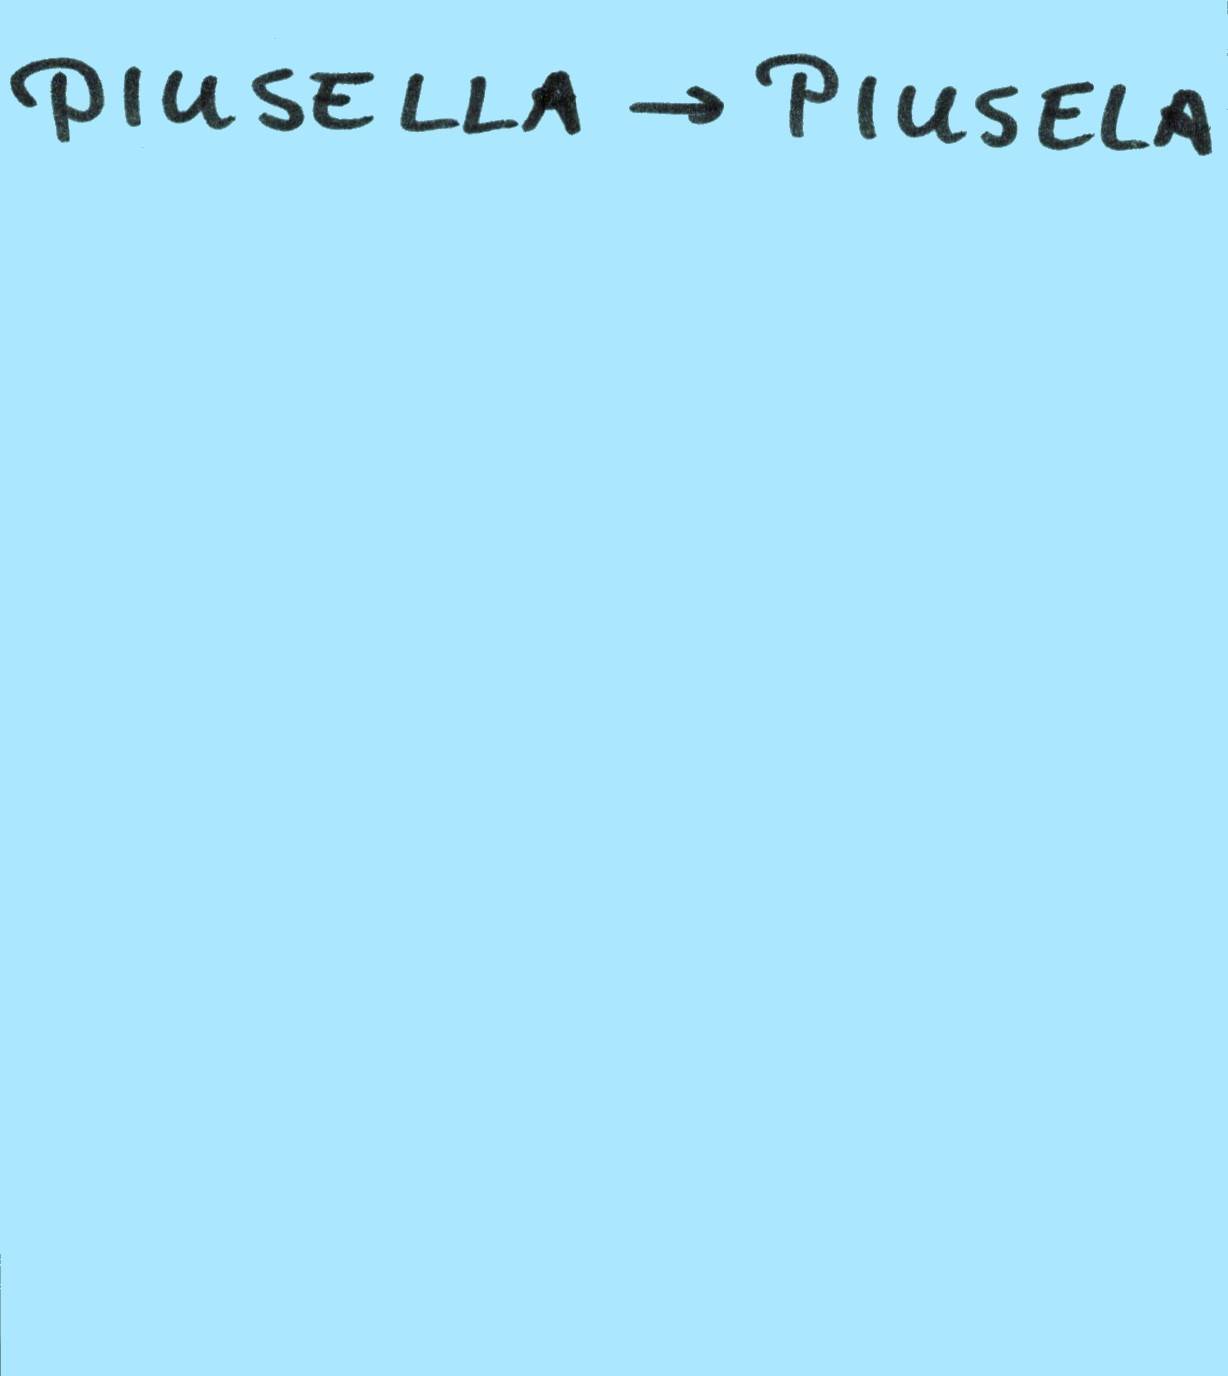 PIUSELLA → PIUSELA